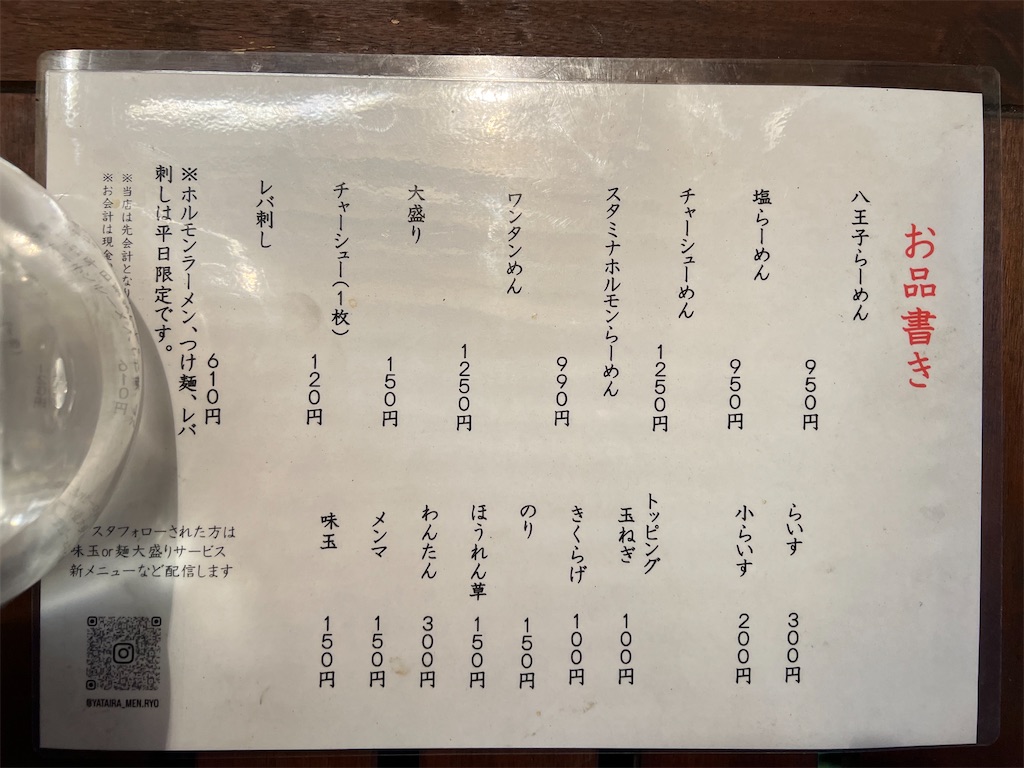 お品書き
八王子らーめん
950円
塩らーめん
950円
チャーシューめん
1250円
スタミナホルモンらーめん
990円
ワンタンめん
1250円
大盛り
150円
チャーシュー(1枚)
120円
レバ刺し
610円
※ホルモンラーメン、つけ麺、レバ
刺しは平日限定です。
※当店は先会計となり
※お会計は現金
らいす
300円
小らいす
200円
トッピング
玉ねぎ
100円
きくらげ
100円
のり
150円
ほうれん草
150円
わんたん
300円
メンマ
150円
味玉
150円
スタフォローされた方は
味玉or麺大盛りサービス
新メニューなど配信します
@YATAIRA_MEN.RYO